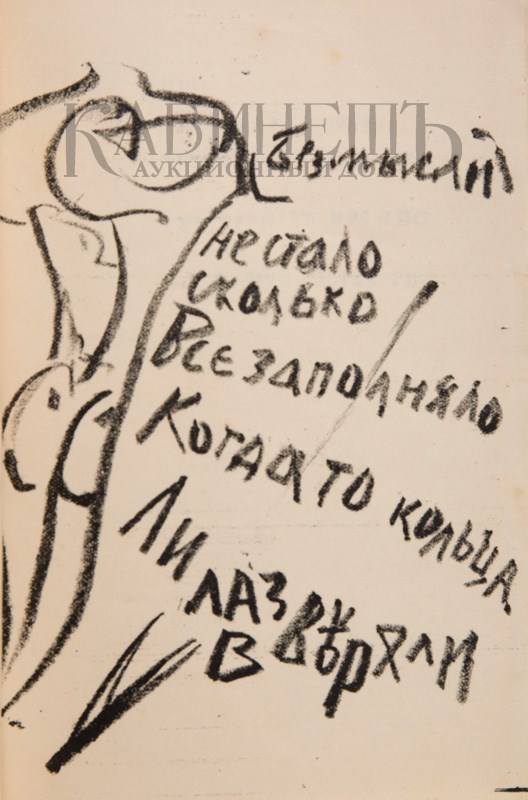 КАБИНЕТЪ
АУКЦИОННЫЙ ДОМ
не стало
сколько
Все заполняло
Когда то кольца
Ли
лаз
В вѣряли